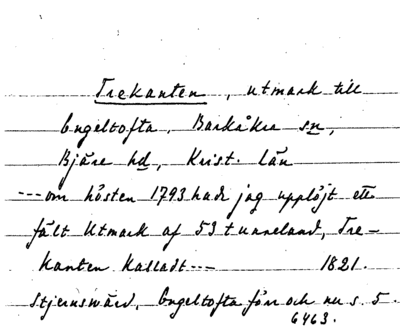 Trekanten, utmark till
Engeltofta, Barkåkra sn,
Bjäre hd, Krist. län
---om hösten 1793 hade jag upplöjt ett
fält Utmark af 53 tunneland, Tre-
kanten Kalladt--- 1821.
Stjernswärd, Engeltofta förr och nu s. 5.
6463.